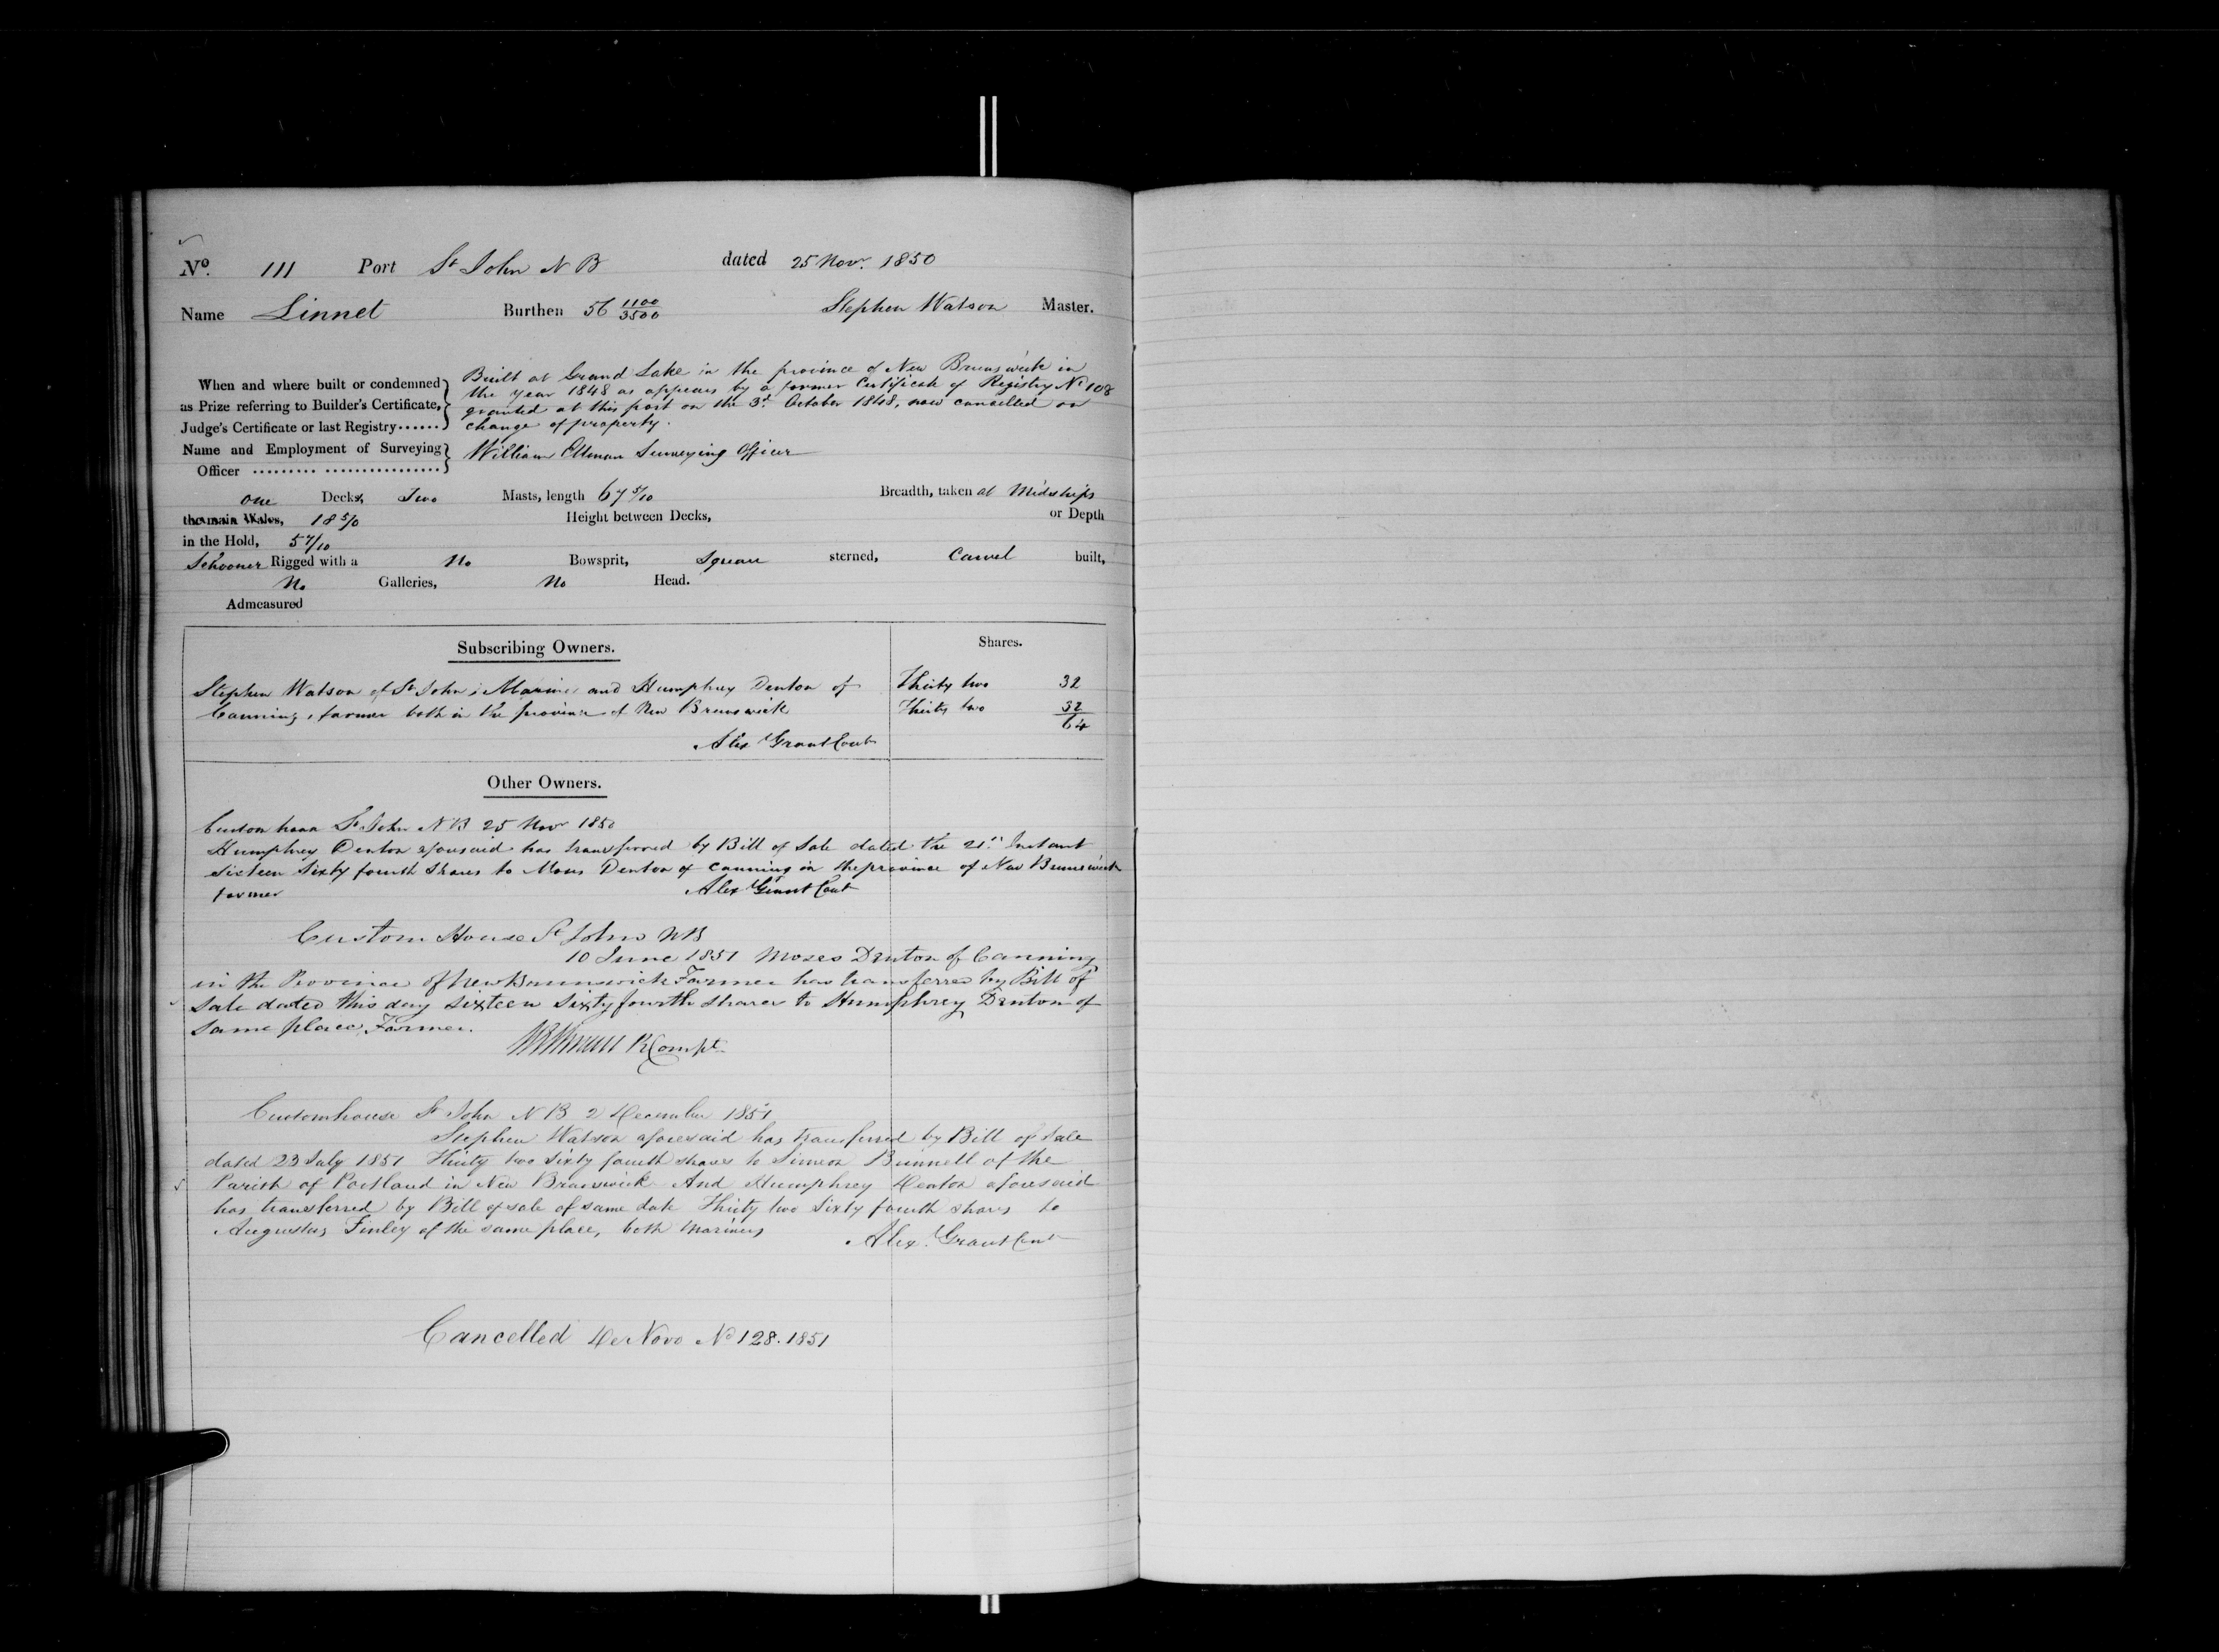 No. 111 Port St John N B dated 25 Nov. 1850
Name Linnet Burthen 56 1100/3500 Stephen Watson Master.
When and where built or condemned as Prize referring to Builder's Certificate, Judge's Certificate or last Registry......
Built at Grand Lake in the province of New Brunswick in
the year 1848 as appears by a former Certificate of Registry No 108
granted at this port on the 3d October 1848, now cancelled on
change of property.
Name and Employment of Surveying Officer ......... ................
William Ellman Surveying Officer
one Decks, Two Masts, length 67 5/10 Breadth, taken at Midships
the main Wales, 18 5/10 Height between Decks, or Depth
in the Hold, 5 7/10
Schooner Rigged with a No Bowsprit, Square sterned, Carvel built,
No Galleries, No Head.
Admeasured
Subscribing Owners. Shares.
Stephen Watson of St John, Mariner and Humphrey Denton of Thirty two 32
Canning, farmer both in the province of New Brunswick Thirty two 32
64
Alex Grant Cont
Other Owners.
Custom house St John N B 25 Nov 1850
Humphrey Denton aforesaid has transferred by Bill of Sale dated the 21st Instant
Sixteen Sixty fourth Shares to Moses Denton of Canning in the province of New Brunswick
farmer Alex Grant Cont
Custom House St John NB
10 June 1851 Moses Denton of Canning
in the Province of New Brunswick Farmer has transferred by Bill of
Sale dated this day Sixteen Sixty fourth shares to Humphrey Denton of
Same place, Farmer.
Compt
Customhouse St John N B 2 December 1851
Stephen Watson aforesaid has transferred by Bill of Sale
dated 23 July 1851 Thirty two Sixty fourth shares to Simeon Bunnell of the
Parish of Portland in New Brunswick And Humphrey Denton aforesaid
has transferred by Bill of sale of same date Thirty two Sixty fourth shares to
Augustus Finley of the same place, both Mariners
Alex. Grant Cont
Cancelled De Novo No 128. 1851